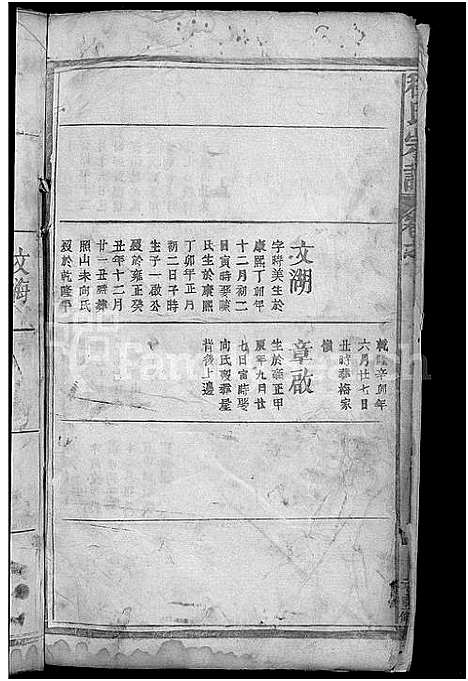 氏宗譜
文湖
字祥美生於
康熙丁朝年
十二月初二
日寅時娶陳
氏生於康熙
丁卯年正月
初二日子時
生子一啟公
歿於雍正癸
丑年十二月
廿一丑時葬
照山未向氏
歿於乾隆平
章啟
生於雍正甲
寅年九月廿
七日寅時娶
向氏歿葬屋
背後上邊
乾隆辛卯年
六月廿七日
丑時葬梅家
嶺
文海